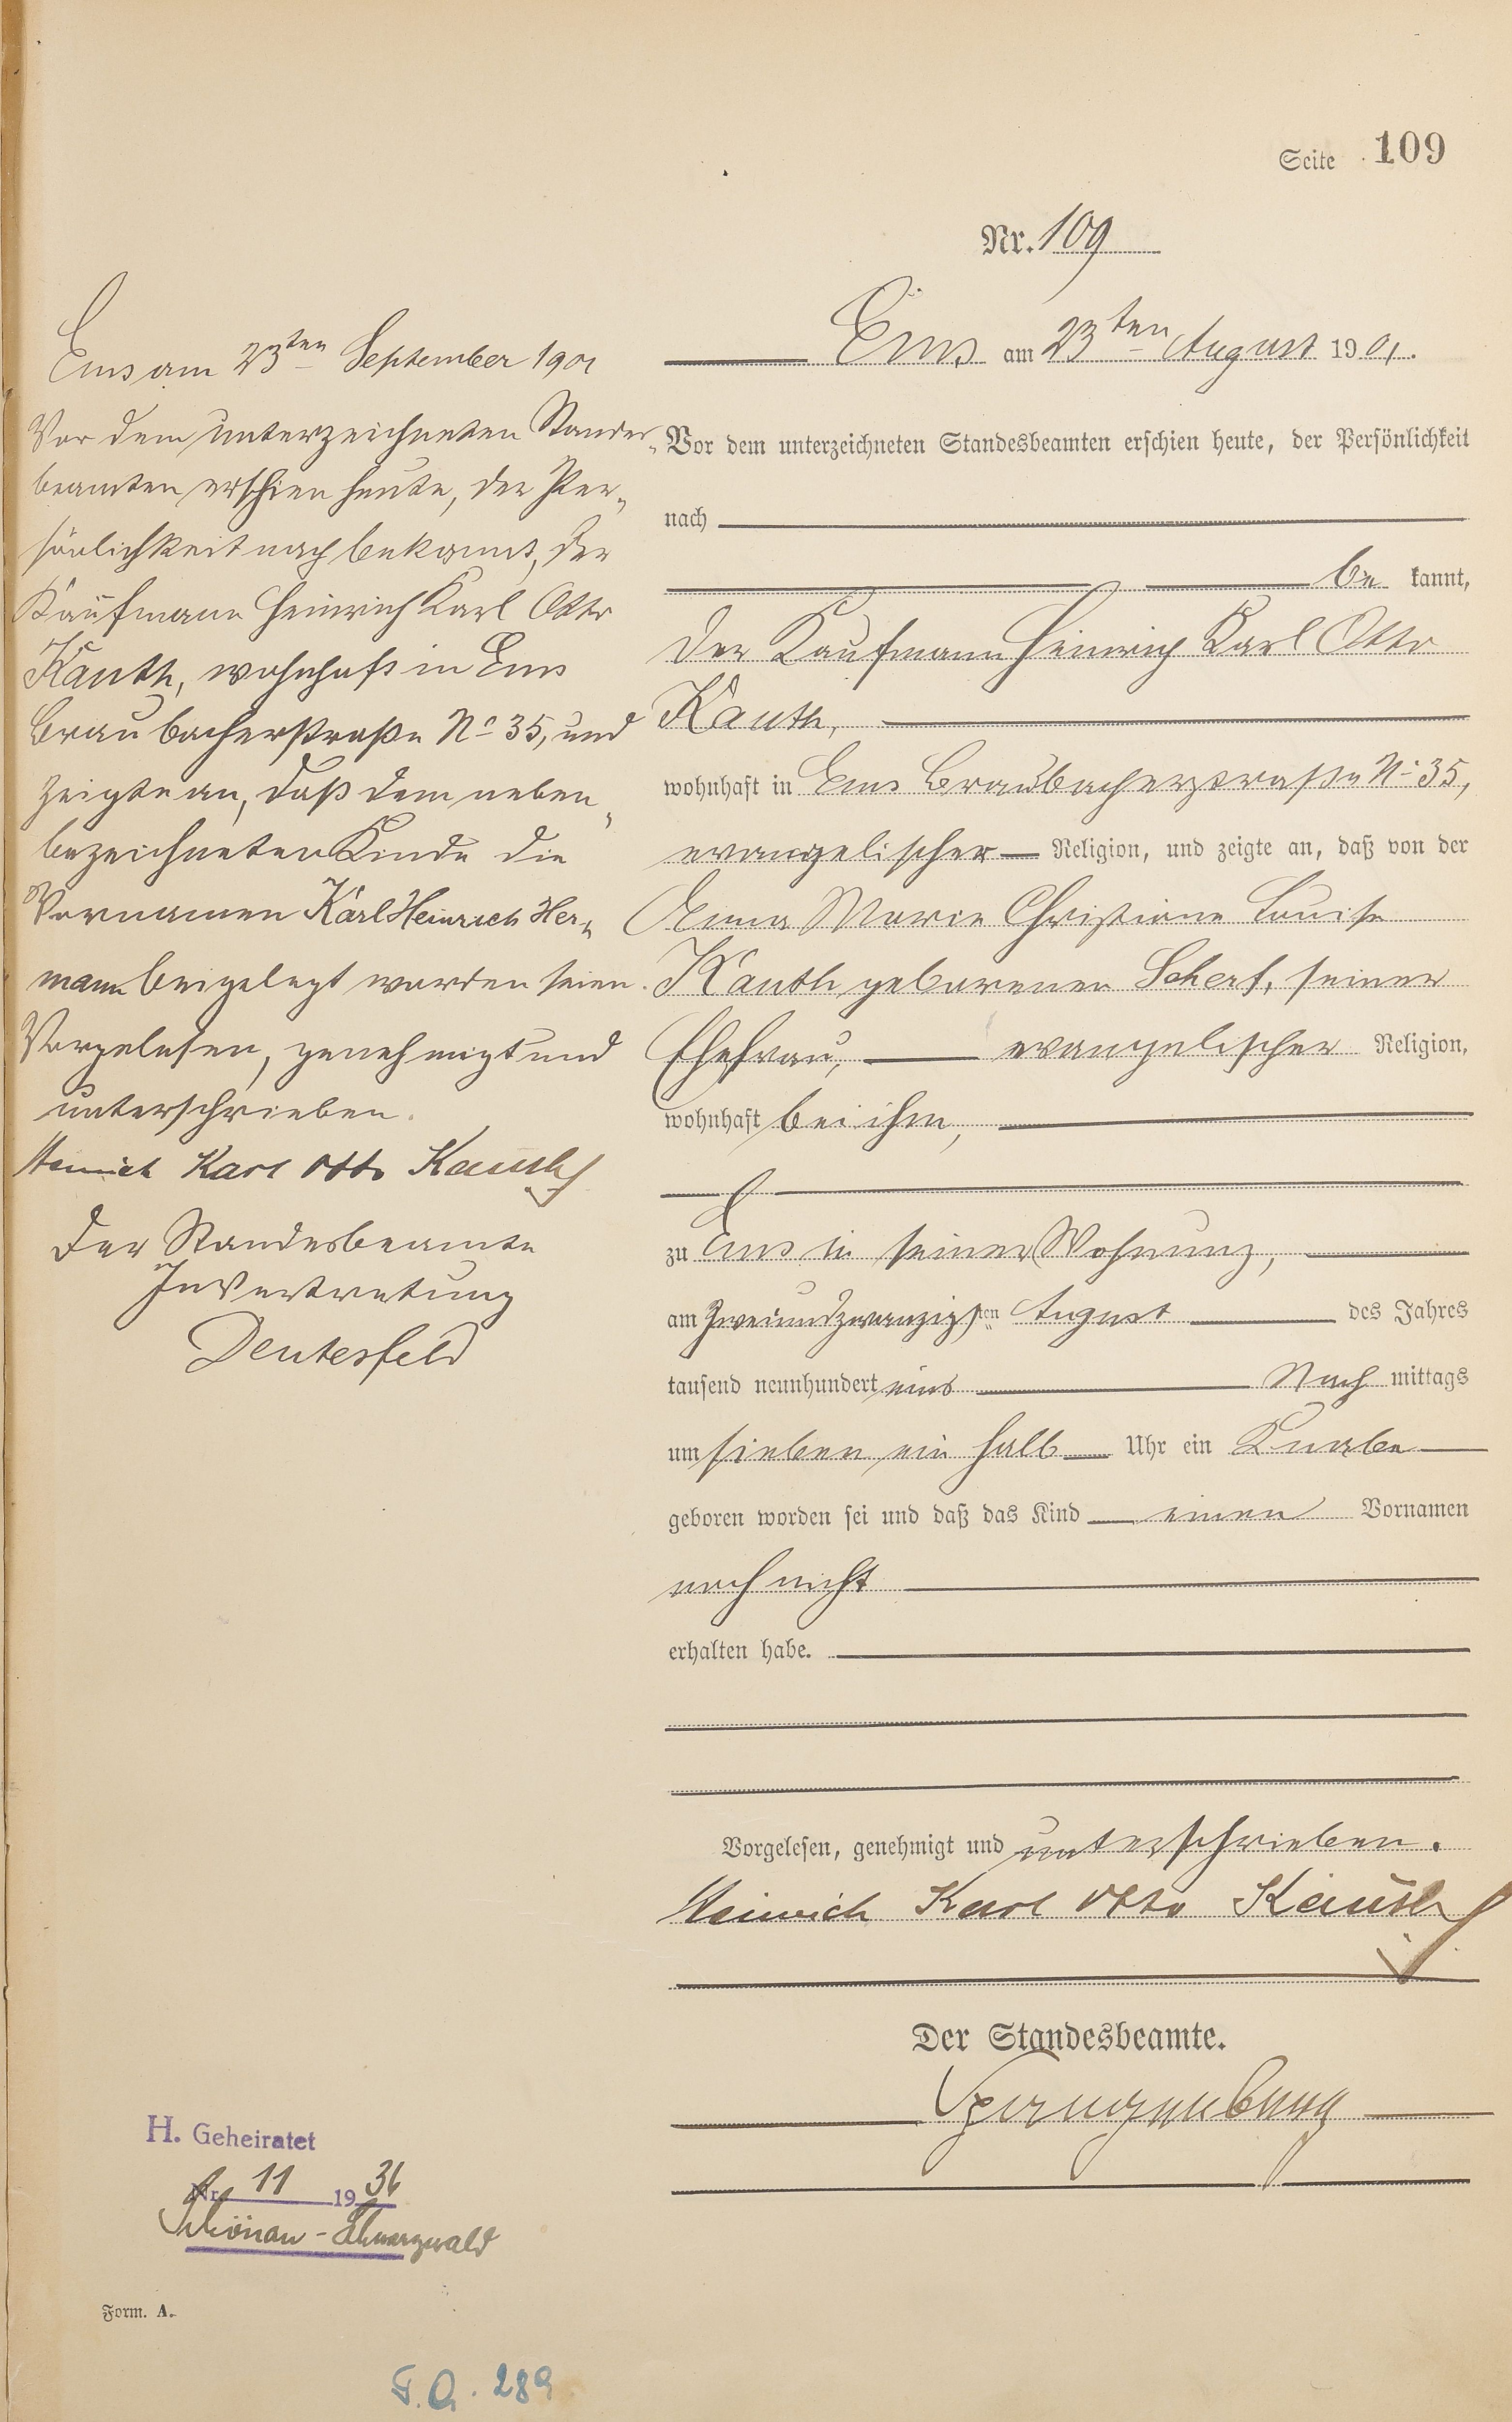 Seite 109
Nr. 109
Ems am 23ten August 1901.
Vor dem unterzeichneten Standesbeamten erschien heute, der Persönlichkeit
nach
be kannt,
der Kaufmann Heinrich Karl Otto
Kauth,
wohnhaft in Ems Braubacherstraße No 35,
evangelischer Religion, und zeigte an, daß von der
Anna Marie Christiane Louise
Kauth geborenen Scherf, seiner
Ehefrau, evangelischer Religion,
wohnhaft bei ihm,
zu Ems in seiner Wohnung,
am zweiundzwanzigsten August des Jahres
tausend neunhundert eins Nach mittags
um sieben ein halb Uhr ein Knabe
geboren worden sei und daß das Kind einen Vornamen
noch nicht
erhalten habe.
Vorgelesen, genehmigt und unterschrieben.
Heinrich Karl Otto Kauth
Der Standesbeamte.
Ems am 23ten September 1901
Vor dem unterzeichneten Standes-
beamten erschien heute, der Per-
sönlichkeit nach bekannt, der
Kaufmann Heinrich Karl Otto
Kauth, wohnhaft in Ems
Braubacherstraße No 35, und
zeigte an, daß dem neben-
bezeichneten Kinde die
Vornamen Karl Heinrich Her-
mann beigelegt worden seien.
Vorgelesen, genehmigt und
unterschrieben.
Heinrich Karl Otto Kauth
Der Standesbeamte
In Vertretung
Deutesfeld
H. Geheiratet
Nr. 11 1936
Schönau - Schwarzwald
Form. A.
F.A. 289